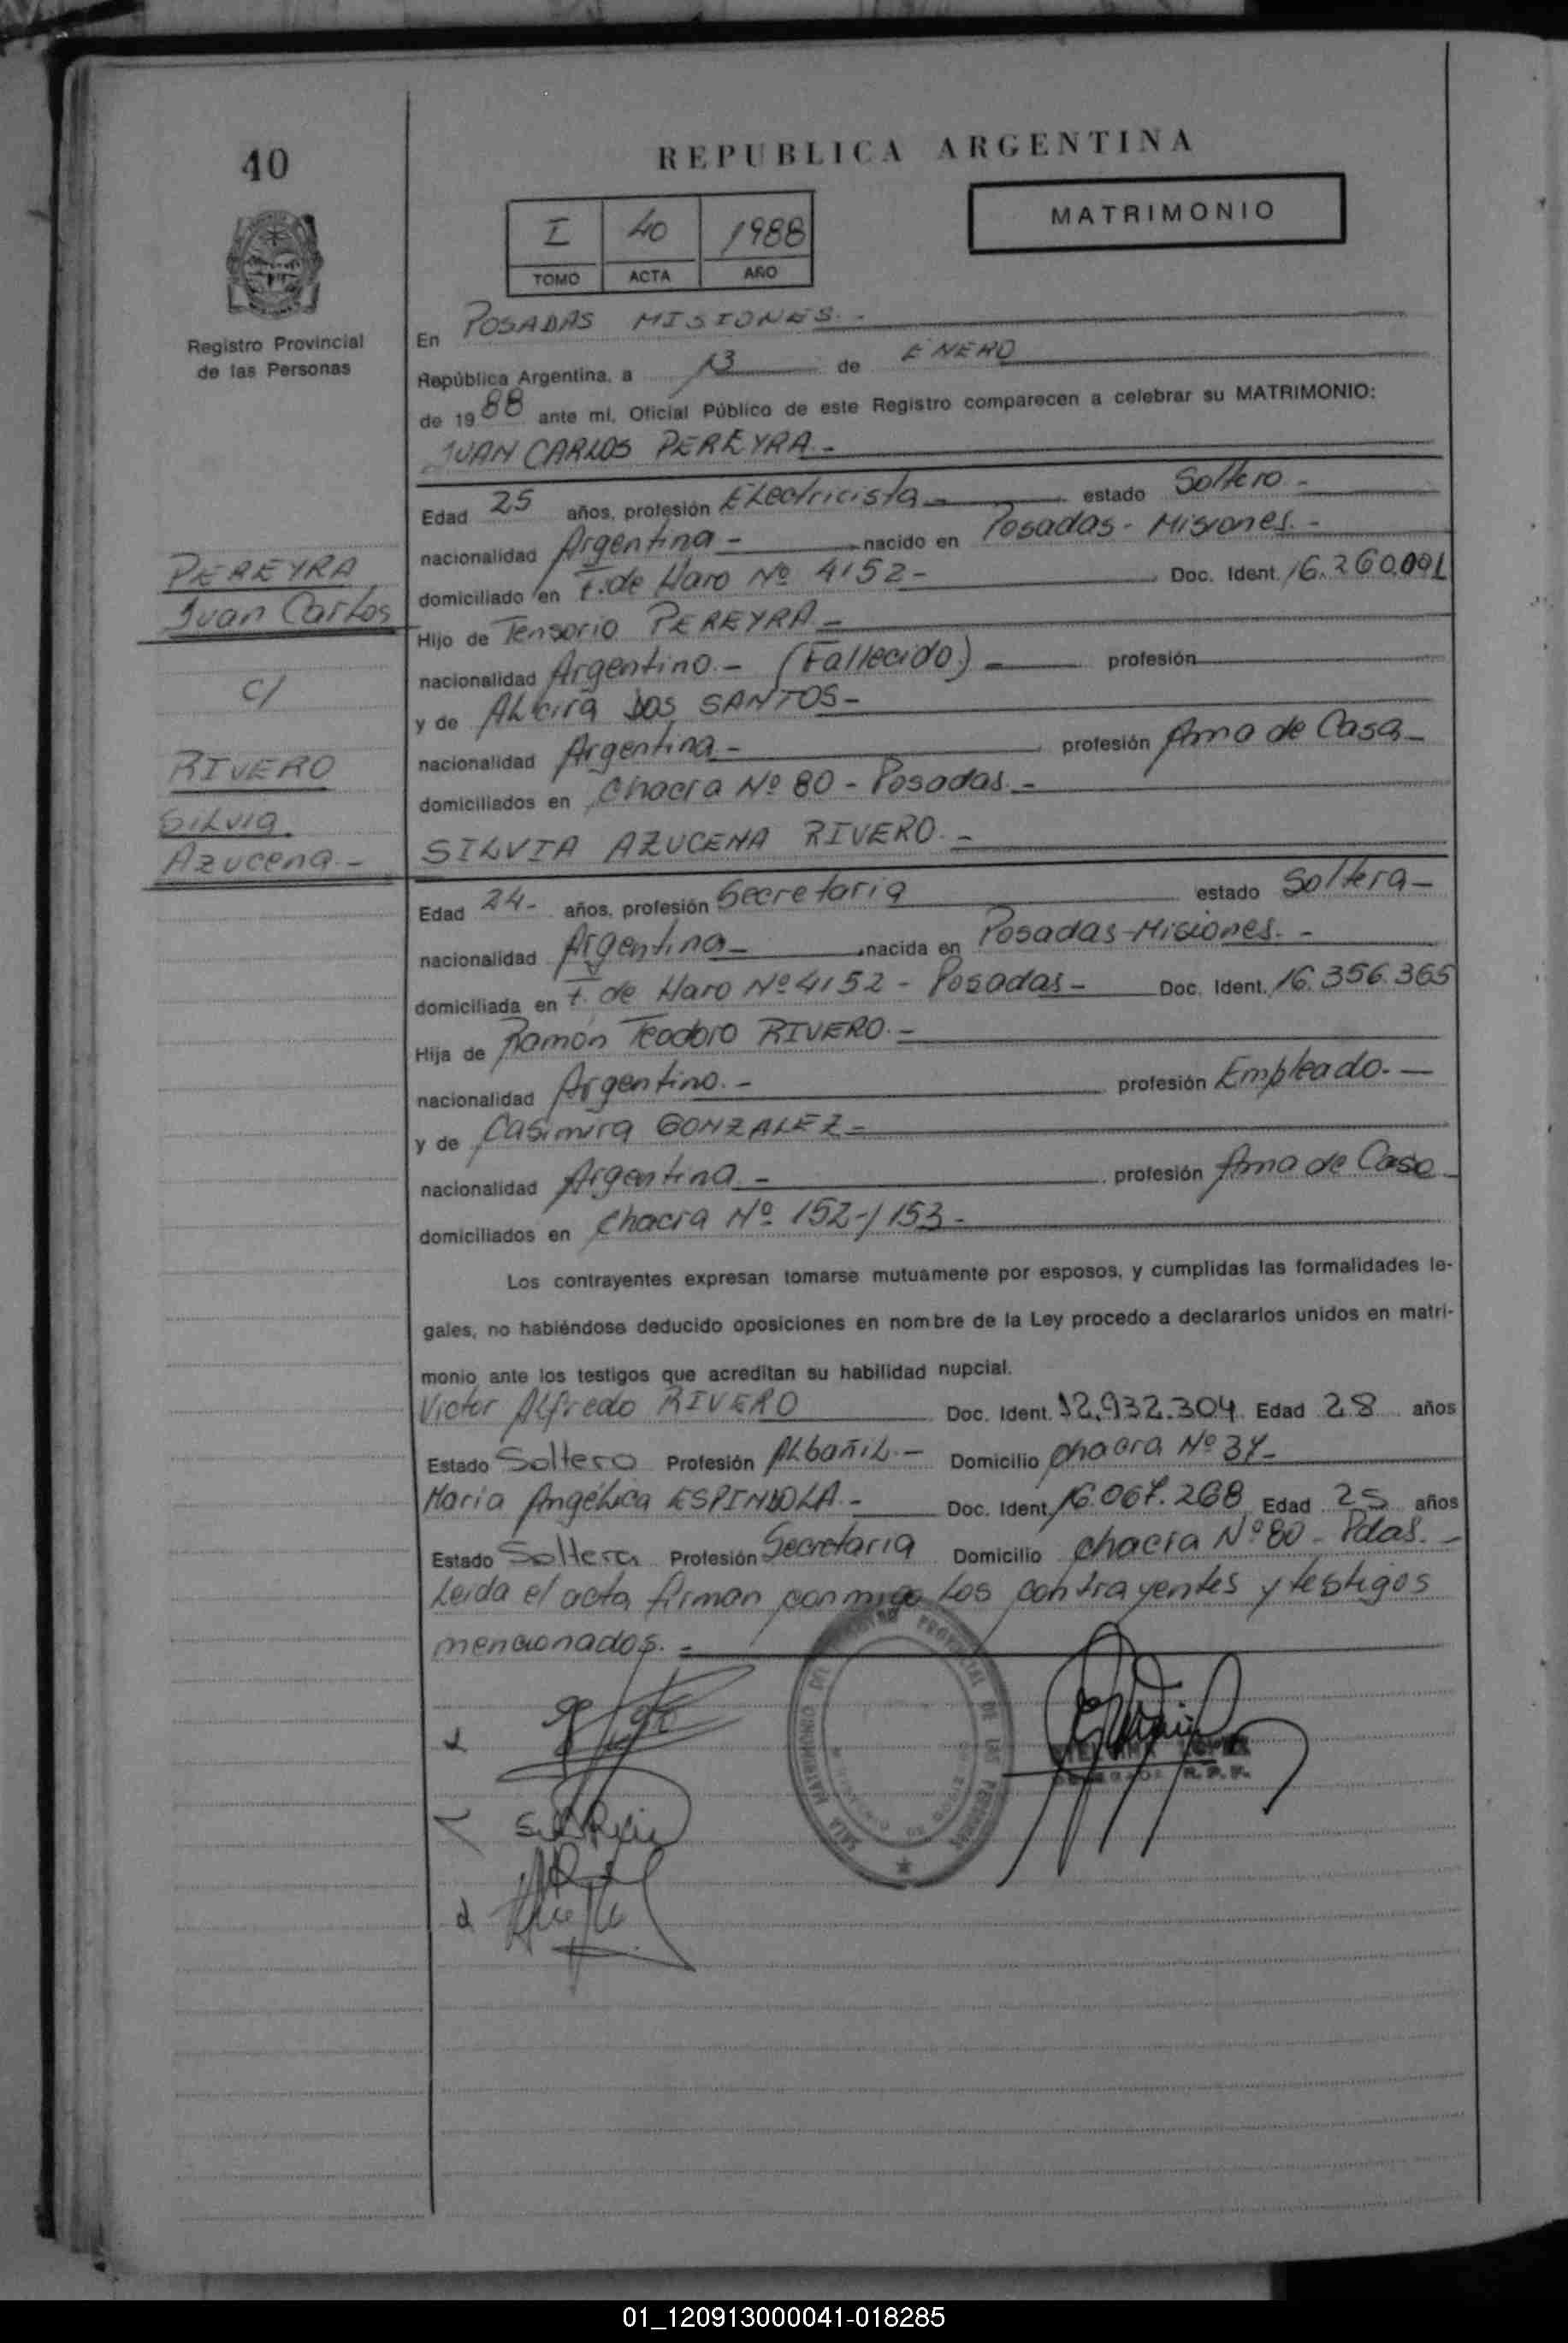 40
REPUBLICA ARGENTINA
MATRIMONIO
I 40 1988
TOMO ACTA AÑO
Registro Provincial
de las Personas
En POSADAS MISIONES.-
República Argentina, a 13 de ENERO
de 1988 ante mí, Oficial Público de este Registro comparecen a celebrar su MATRIMONIO:
JUAN CARLOS PEREYRA.-
Edad 25 años, profesión Electricista.- estado Soltero.-
nacionalidad Argentina.- nacido en Posadas - Misiones.-
domiciliado en F. de Haro Nº 4152- Doc. Ident. 16.260.001
PEREYRA
Juan Carlos
Hijo de Tensorio PEREYRA.-
nacionalidad Argentino.- (Fallecido).- profesión
c/
y de ALcira DOS SANTOS-
nacionalidad Argentina.- profesión Ama de Casa-
domiciliados en Chacra Nº 80 - Posadas.-
RIVERO
Silvia
Azucena.-
SILVIA AZUCENA RIVERO.-
Edad 24- años, profesión Secretaria estado Soltera-
nacionalidad Argentina- nacida en Posadas-Misiones.-
domiciliada en F. de Haro Nº 4152 - Posadas- Doc. Ident. 16.356.365
Hija de Ramón Teodoro RIVERO.-
nacionalidad Argentino.- profesión Empleado.-
y de Casimira GONZALEZ-
nacionalidad Argentina.- profesión Ama de Casa
domiciliados en Chacra Nº 152-/153-
Los contrayentes expresan tomarse mutuamente por esposos, y cumplidas las formalidades le-
gales, no habiéndose deducido oposiciones en nombre de la Ley procedo a declararlos unidos en matri-
monio ante los testigos que acreditan su habilidad nupcial.
Victor Alfredo RIVERO Doc. Ident. 12.932.304 Edad 28 años
Estado Soltero Profesión ALbañiL.- Domicilio Chacra Nº 37-
Maria Angélica ESPINDOLA.- Doc. Ident. 16.067.268 Edad 25 años
Estado Soltera Profesión Secretaria Domicilio chacra Nº 80 - Pdas.-
Leida el acta, firman conmigo los contrayentes y testigos
mencionados.-
SALA MATRIMONIO DEL REGISTRO PROVINCIAL DE LAS PERSONAS
01_120913000041-018285